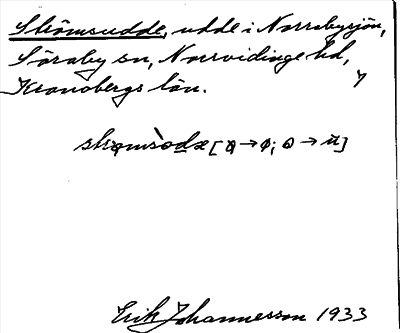 Skrömsudde, udde i Norrabysjön,
Söraby sn, Norrvidinge hd,
Kronobergs län.
Erik Johannesson 1933